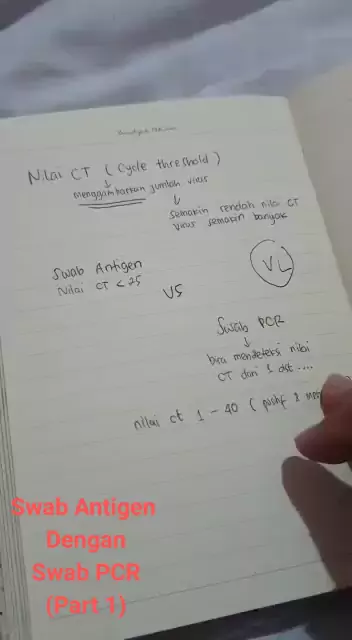 Nilai CT (Cycle threshold)
menggambarkan jumlah virus
semakin rendah nilai CT
virus semakin banyak
Swab Antigen
Nilai CT < 25
VS
VL
Swab PCR
bisa mendeteksi nilai
CT dari 1 dst ....
nilai ct 1 - 40 (
Swab Antigen
Dengan
Swab PCR
(Part 1)